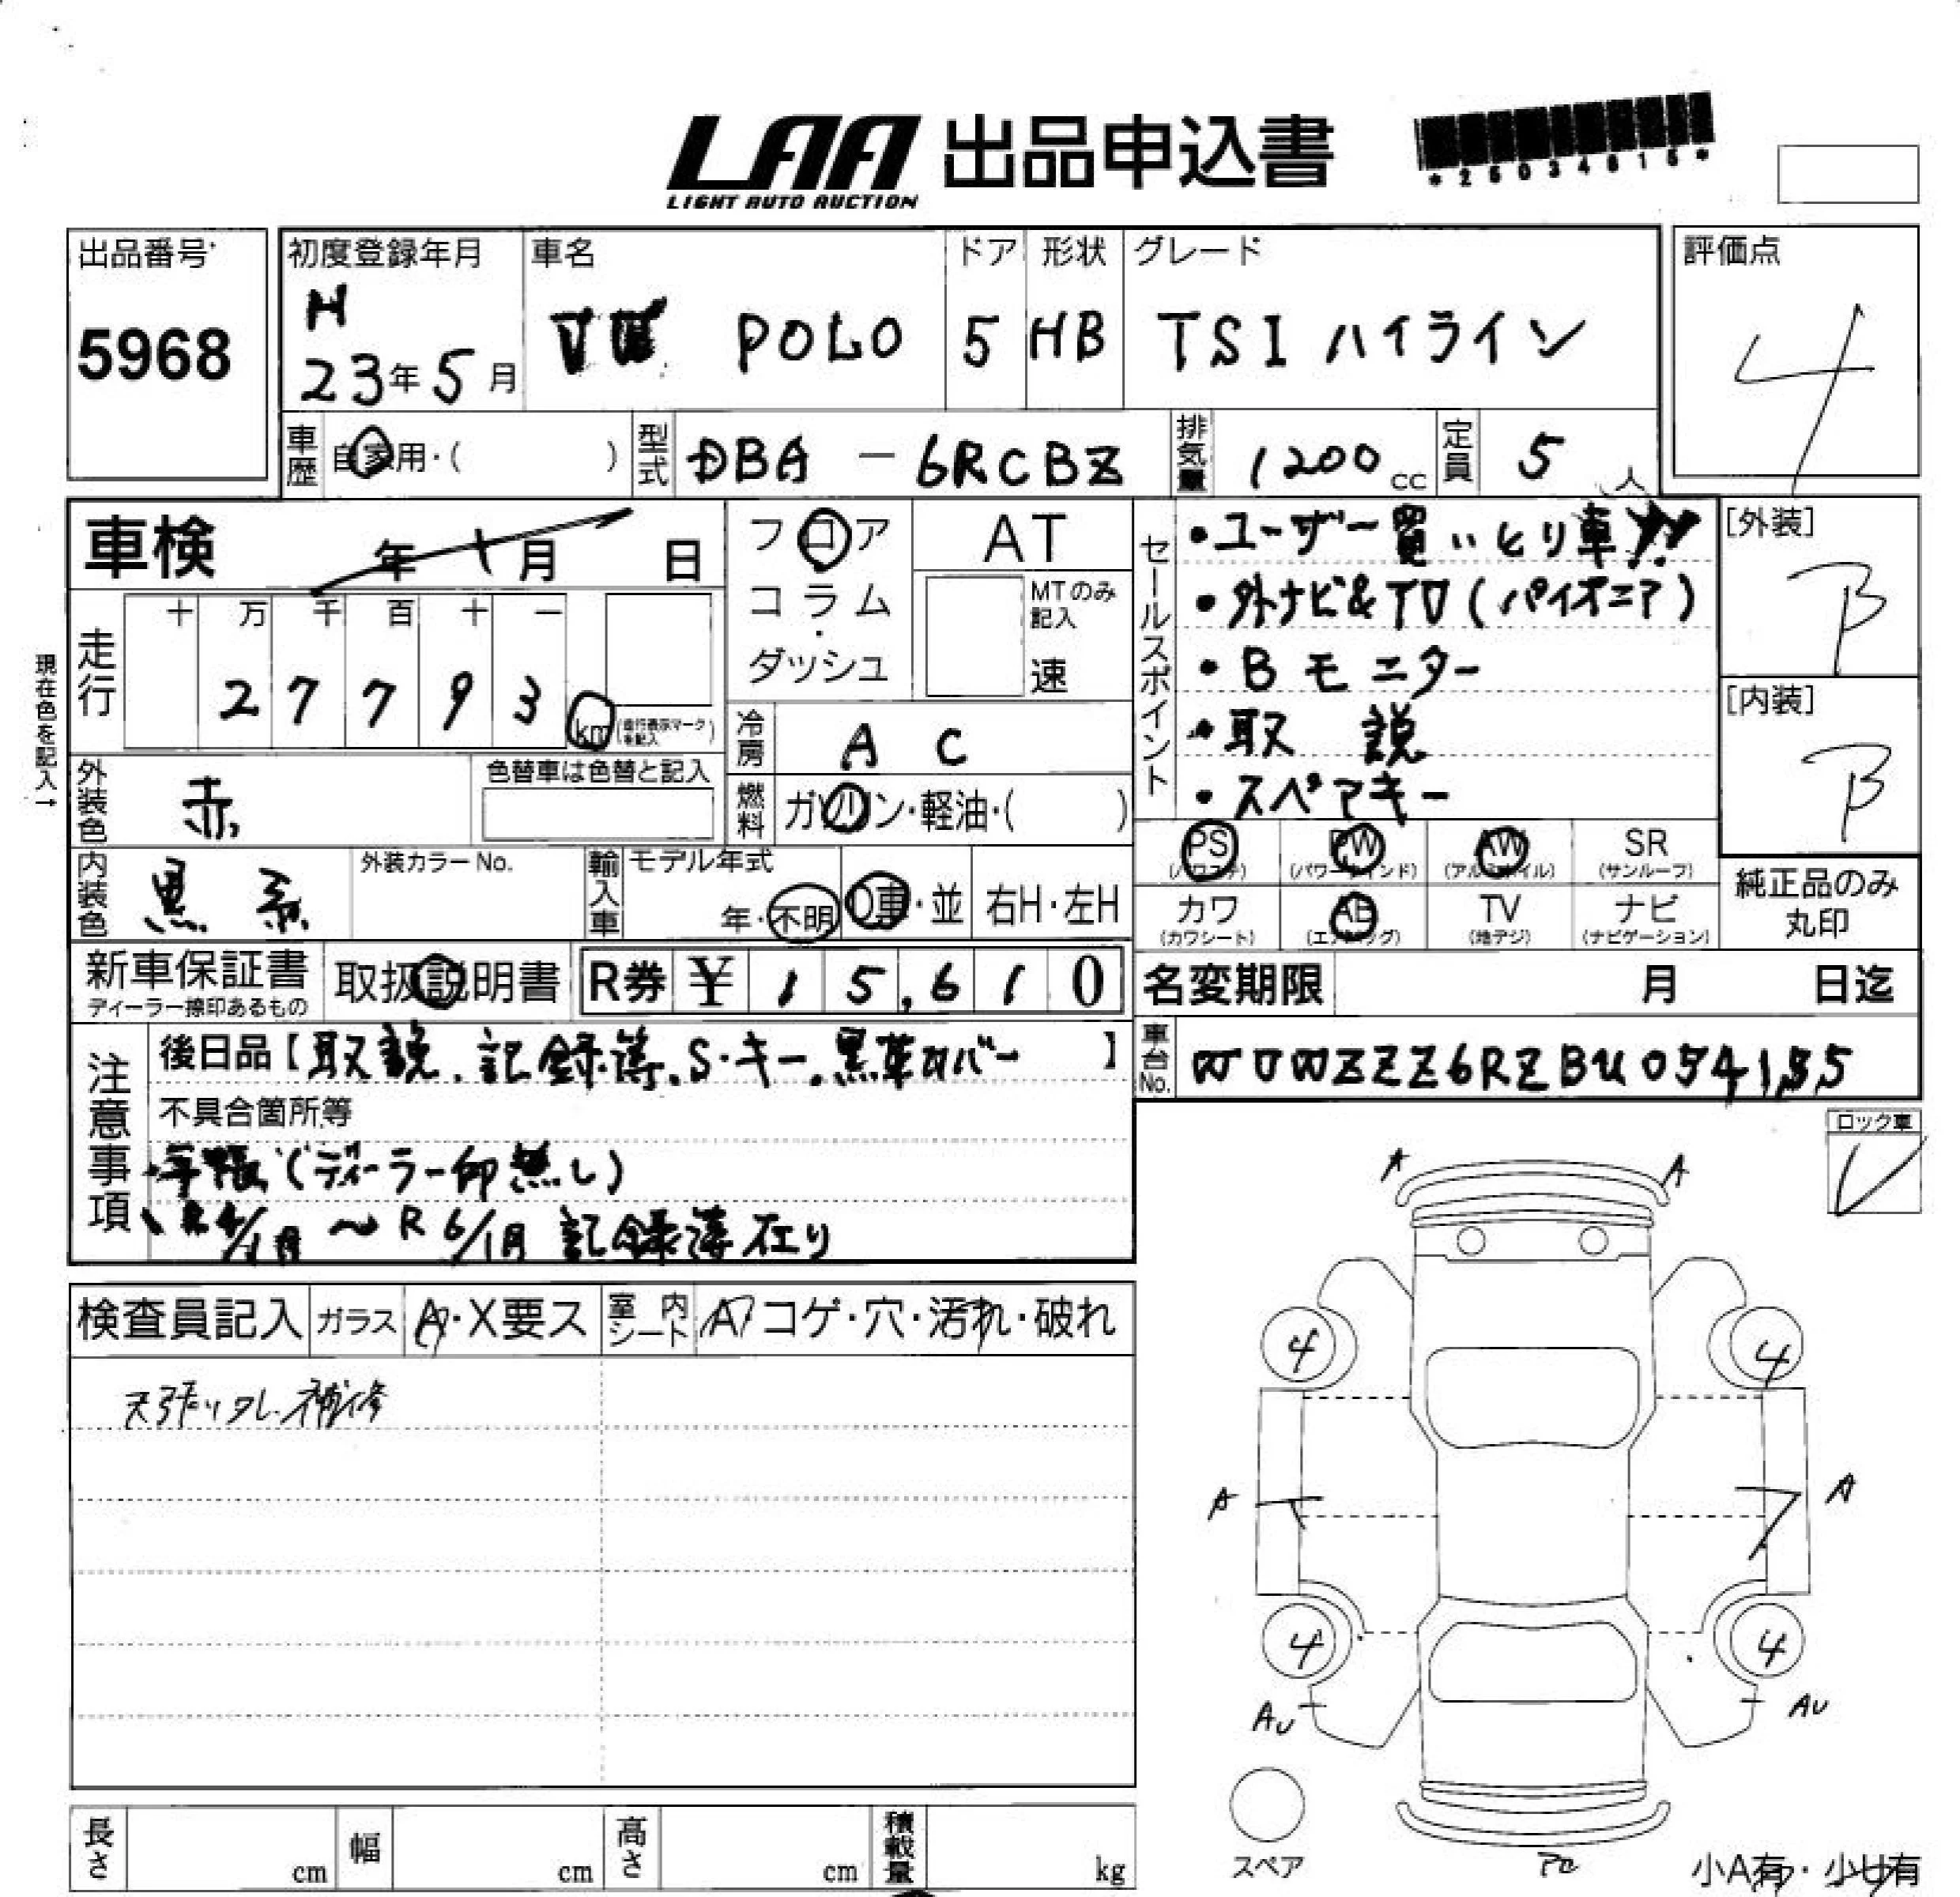 LAA 出品申込書
LIGHT AUTO AUCTION
*25034615*
出品番号
5968
初度登録年月
H
23年5月
車名
VW POLO
ドア
5
形状
HB
グレード
TSI ハイライン
評価点
4
車歴
自家用・( )
型式
DBA - 6RCBZ
排気量
1200cc
定員
5人
車検
年 1月 日
現在色を記入→
走行
十 万 千 百 十 一
2 7 7 9 3
km (走行表示マークを記入)
フロア
コラム
・
ダッシュ
AT
MTのみ記入
速
冷房
A C
燃料
ガソリン・軽油・( )
外装色
赤
色替車は色替と記入
内装色
黒系
外装カラーNo.
輸入車
モデル年式
年・不明
D車・並
右H・左H
セールスポイント
・ユーザー買いとり車!!
・外ナビ&TV(パイオニア)
・Bモニター
・取 説
・スペアキー
[外装]
B
[内装]
B
PS (パワステ)
PW (パワーウインド)
AW (アルミホイル)
SR (サンルーフ)
カワ (カワシート)
AB (エアバッグ)
TV (地デジ)
ナビ (ナビゲーション)
純正品のみ
丸印
新車保証書
ディーラー捺印あるもの
取扱説明書
R券 ¥ 1 5,6 1 0
名変期限 月 日迄
車台No.
WVWZZZ6RZBU054155
注意事項
後日品【取説、記録簿、S・キー、黒革カバー 】
不具合箇所等
・手帳(ディーラー印無し)
、R4/1月〜R6/1月 記録簿在り
ロック車
レ
検査員記入
ガラス
A・X要ス
室内シート
A コゲ・穴・汚れ・破れ
天張りタレ補修
A A
4 4
A A
4 4
AU AU
スペア
小A有・少U有
長さ cm
幅 cm
高さ cm
積載量 kg